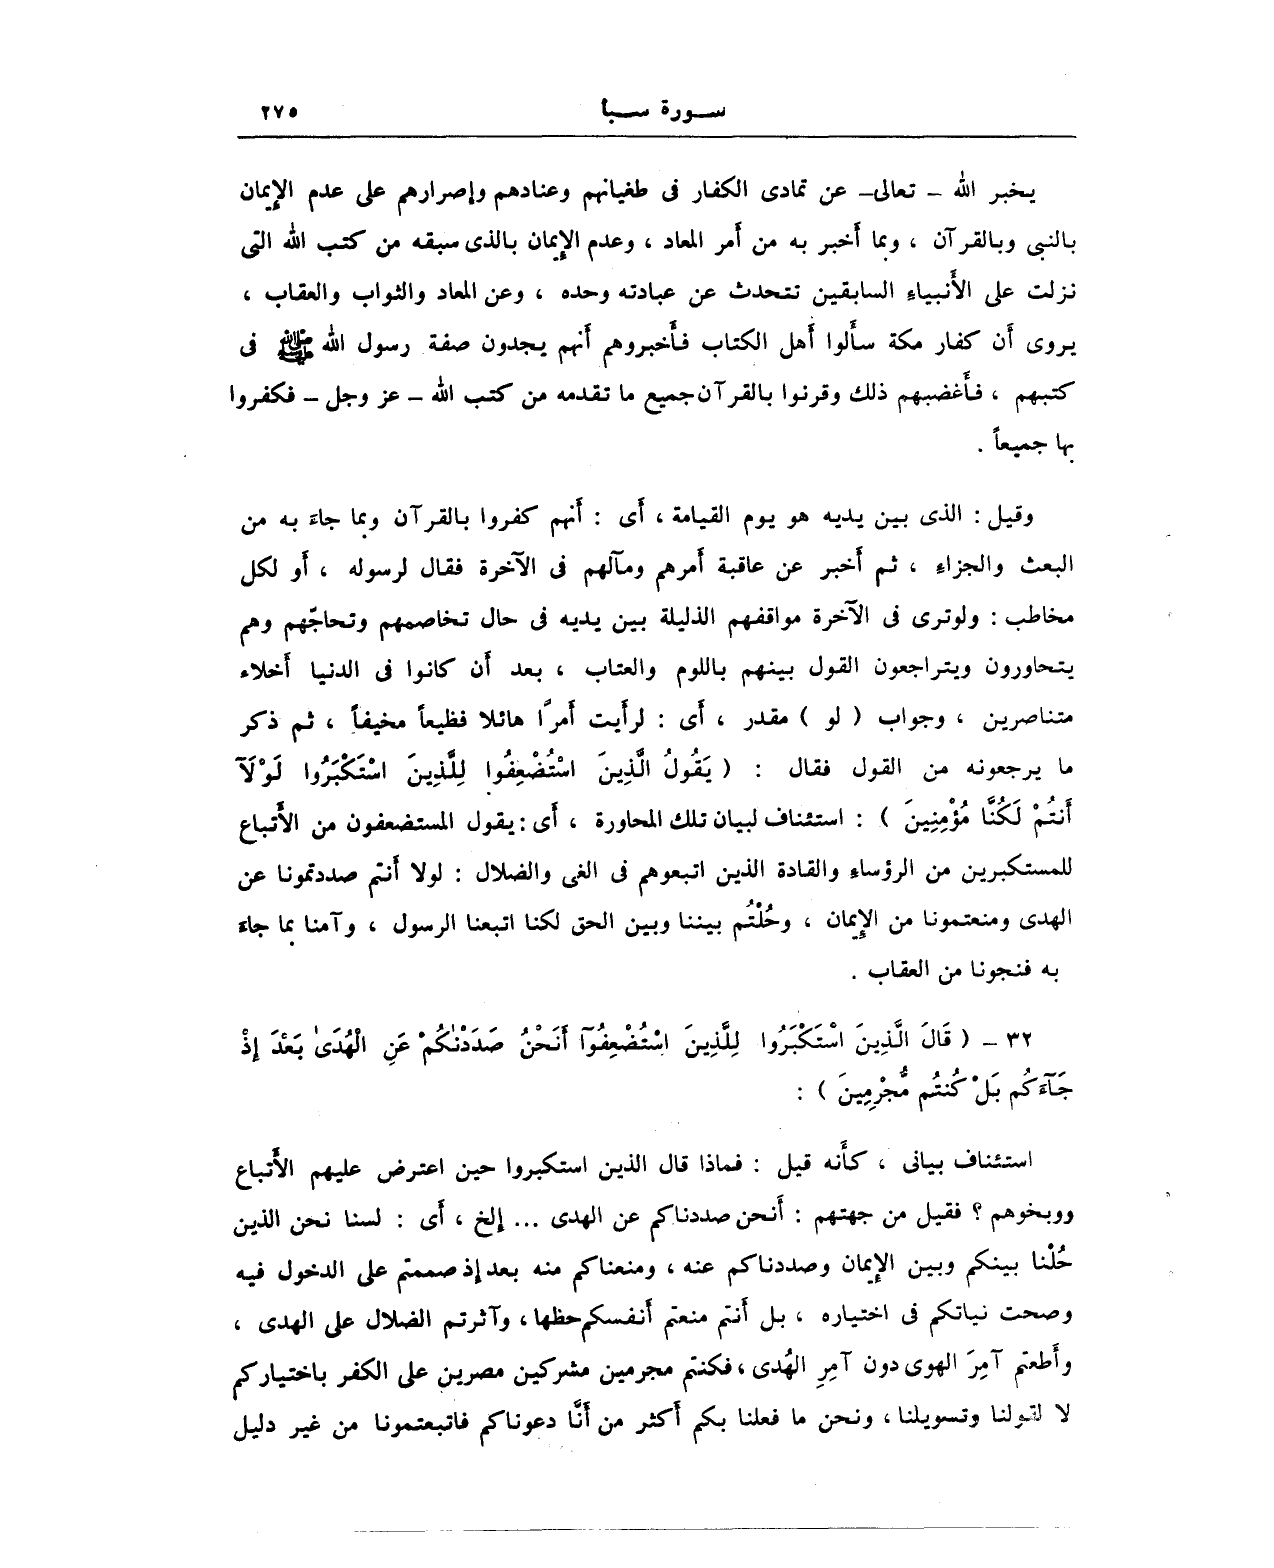 سورة سبأ ٢٧٥
يخبر الله - تعالى- عن تمادى الكفار فى طغيانهم وعنادهم وإصرارهم على عدم الإيمان
بالنبى وبالقرآن ، وبما أخبر به من أمر المعاد ، وعدم الإيمان بالذى سبقه من كتب الله التى
نزلت على الأنبياء السابقين تتحدث عن عبادته وحده ، وعن المعاد والثواب والعقاب ،
يروى أن كفار مكة سألوا أهل الكتاب فأخبروهم أنهم يجدون صفة رسول الله ﷺ فى
كتبهم ، فأغضبهم ذلك وقرنوا بالقرآن جميع ما تقدمه من كتب الله - عز وجل - فكفروا
بها جميعاً .
وقيل : الذى بين يديه هو يوم القيامة ، أى : أنهم كفروا بالقرآن وبما جاء به من
البعث والجزاء ، ثم أخبر عن عاقبة أمرهم ومآلهم فى الآخرة فقال لرسوله ، أو لكل
مخاطب : ولو ترى فى الآخرة مواقفهم الذليلة بين يديه فى حال تخاصمهم وتحاجّهم وهم
يتحاورون ويتراجعون القول بينهم باللوم والعتاب ، بعد أن كانوا فى الدنيا أخلاء
متناصرين ، وجواب ( لو ) مقدر ، أى : لرأيت أمرًا هائلا فظيعاً مخيفاً ، ثم ذكر
ما يرجعونه من القول فقال : ( يَقُولُ الَّذِينَ اسْتُضْعِفُوا لِلَّذِينَ اسْتَكْبَرُوا لَوْلَآ
أَنتُمْ لَكُنَّا مُؤْمِنِينَ ) : استئناف لبيان تلك المحاورة ، أى : يقول المستضعفون من الأتباع
للمستكبرين من الرؤساء والقادة الذين اتبعوهم فى الغى والضلال : لولا أنتم صددتمونا عن
الهدى ومنعتمونا من الإيمان ، وحُلْتُم بيننا وبين الحق لكنا اتبعنا الرسول ، وآمنا بما جاء
به فنجونا من العقاب .
٣٢ - ( قَالَ الَّذِينَ اسْتَكْبَرُوا لِلَّذِينَ اسْتُضْعِفُوٓا أَنَحْنُ صَدَدْنٰكُمْ عَنِ الْهُدَىٰ بَعْدَ إِذْ
جَآءَكُم بَلْ كُنتُم مُّجْرِمِينَ ) :
استئناف بيانى ، كأنه قيل : فماذا قال الذين استكبروا حين اعترض عليهم الأتباع
ووبخوهم ؟ فقيل من جهتهم : أنحن صددناكم عن الهدى ... إلخ ، أى : لسنا نحن الذين
حُلْنا بينكم وبين الإيمان وصددناكم عنه ، ومنعناكم منه بعد إذ صممتم على الدخول فيه
وصحت نياتكم فى اختياره ، بل أنتم منعتم أنفسكم حظها ، وآثرتم الضلال على الهدى ،
وأطعتم آمِرَ الهوى دون آمِرِ الهُدى ، فكنتم مجرمين مشركين مصرين على الكفر باختياركم
لا لقولنا وتسويلنا ، ونحن ما فعلنا بكم أكثر من أنَّا دعوناكم فاتبعتمونا من غير دليل